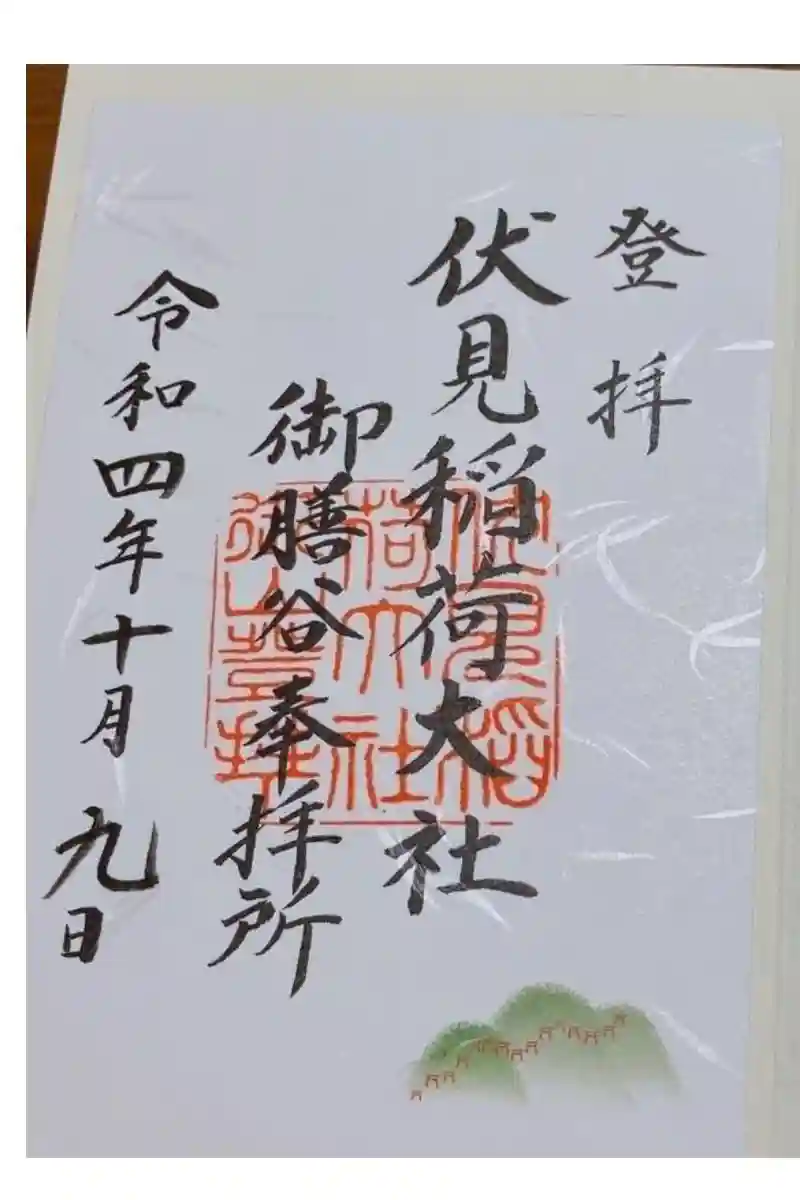 登拝
伏見稲荷大社
御膳谷奉拝所
令和四年十月九日